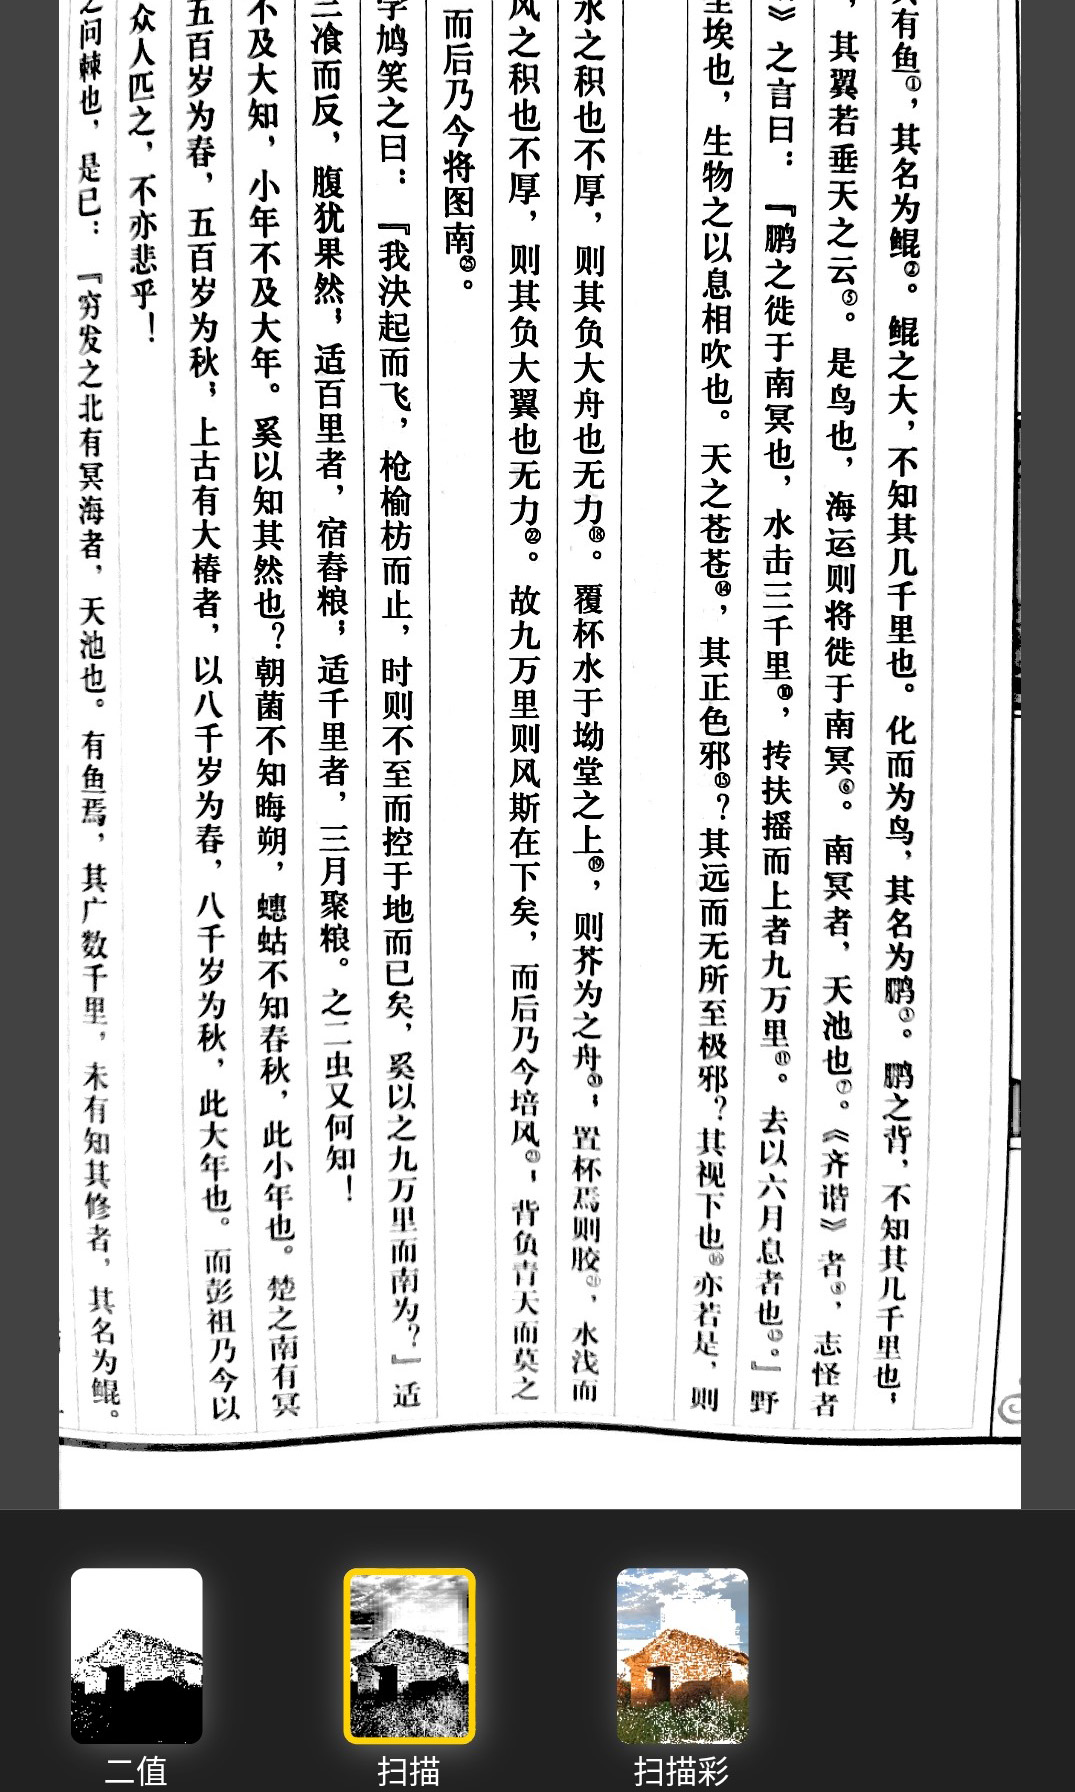 有鱼①，其名为鲲②。鲲之大，不知其几千里也。化而为鸟，其名为鹏③。鹏之背，不知其几千里也；
，其翼若垂天之云⑤。是鸟也，海运则将徙于南冥⑥。南冥者，天池也⑦。《齐谐》者⑧，志怪者
》之言曰：『鹏之徙于南冥也，水击三千里⑩，抟扶摇而上者九万里⑪。去以六月息者也⑫。』野
埃也，生物之以息相吹也。天之苍苍⑭，其正色邪⑮？其远而无所至极邪？其视下也⑯亦若是，则
水之积也不厚，则其负大舟也无力⑱。覆杯水于坳堂之上⑲，则芥为之舟⑳；置杯焉则胶㉑，水浅而
风之积也不厚，则其负大翼也无力㉒。故九万里则风斯在下矣，而后乃今培风㉓；背负青天而莫之
而后乃今将图南㉕。
学鸠笑之曰：『我决起而飞，枪榆枋而止，时则不至而控于地而已矣，奚以之九万里而南为？』适
三飡而反，腹犹果然；适百里者，宿舂粮；适千里者，三月聚粮。之二虫又何知！
不及大知，小年不及大年。奚以知其然也？朝菌不知晦朔，蟪蛄不知春秋，此小年也。楚之南有冥
五百岁为春，五百岁为秋；上古有大椿者，以八千岁为春，八千岁为秋，此大年也。而彭祖乃今以
众人匹之，不亦悲乎！
之问棘也，是已：『穷发之北有冥海者，天池也。有鱼焉，其广数千里，未有知其修者，其名为鲲。
二值
扫描
扫描彩